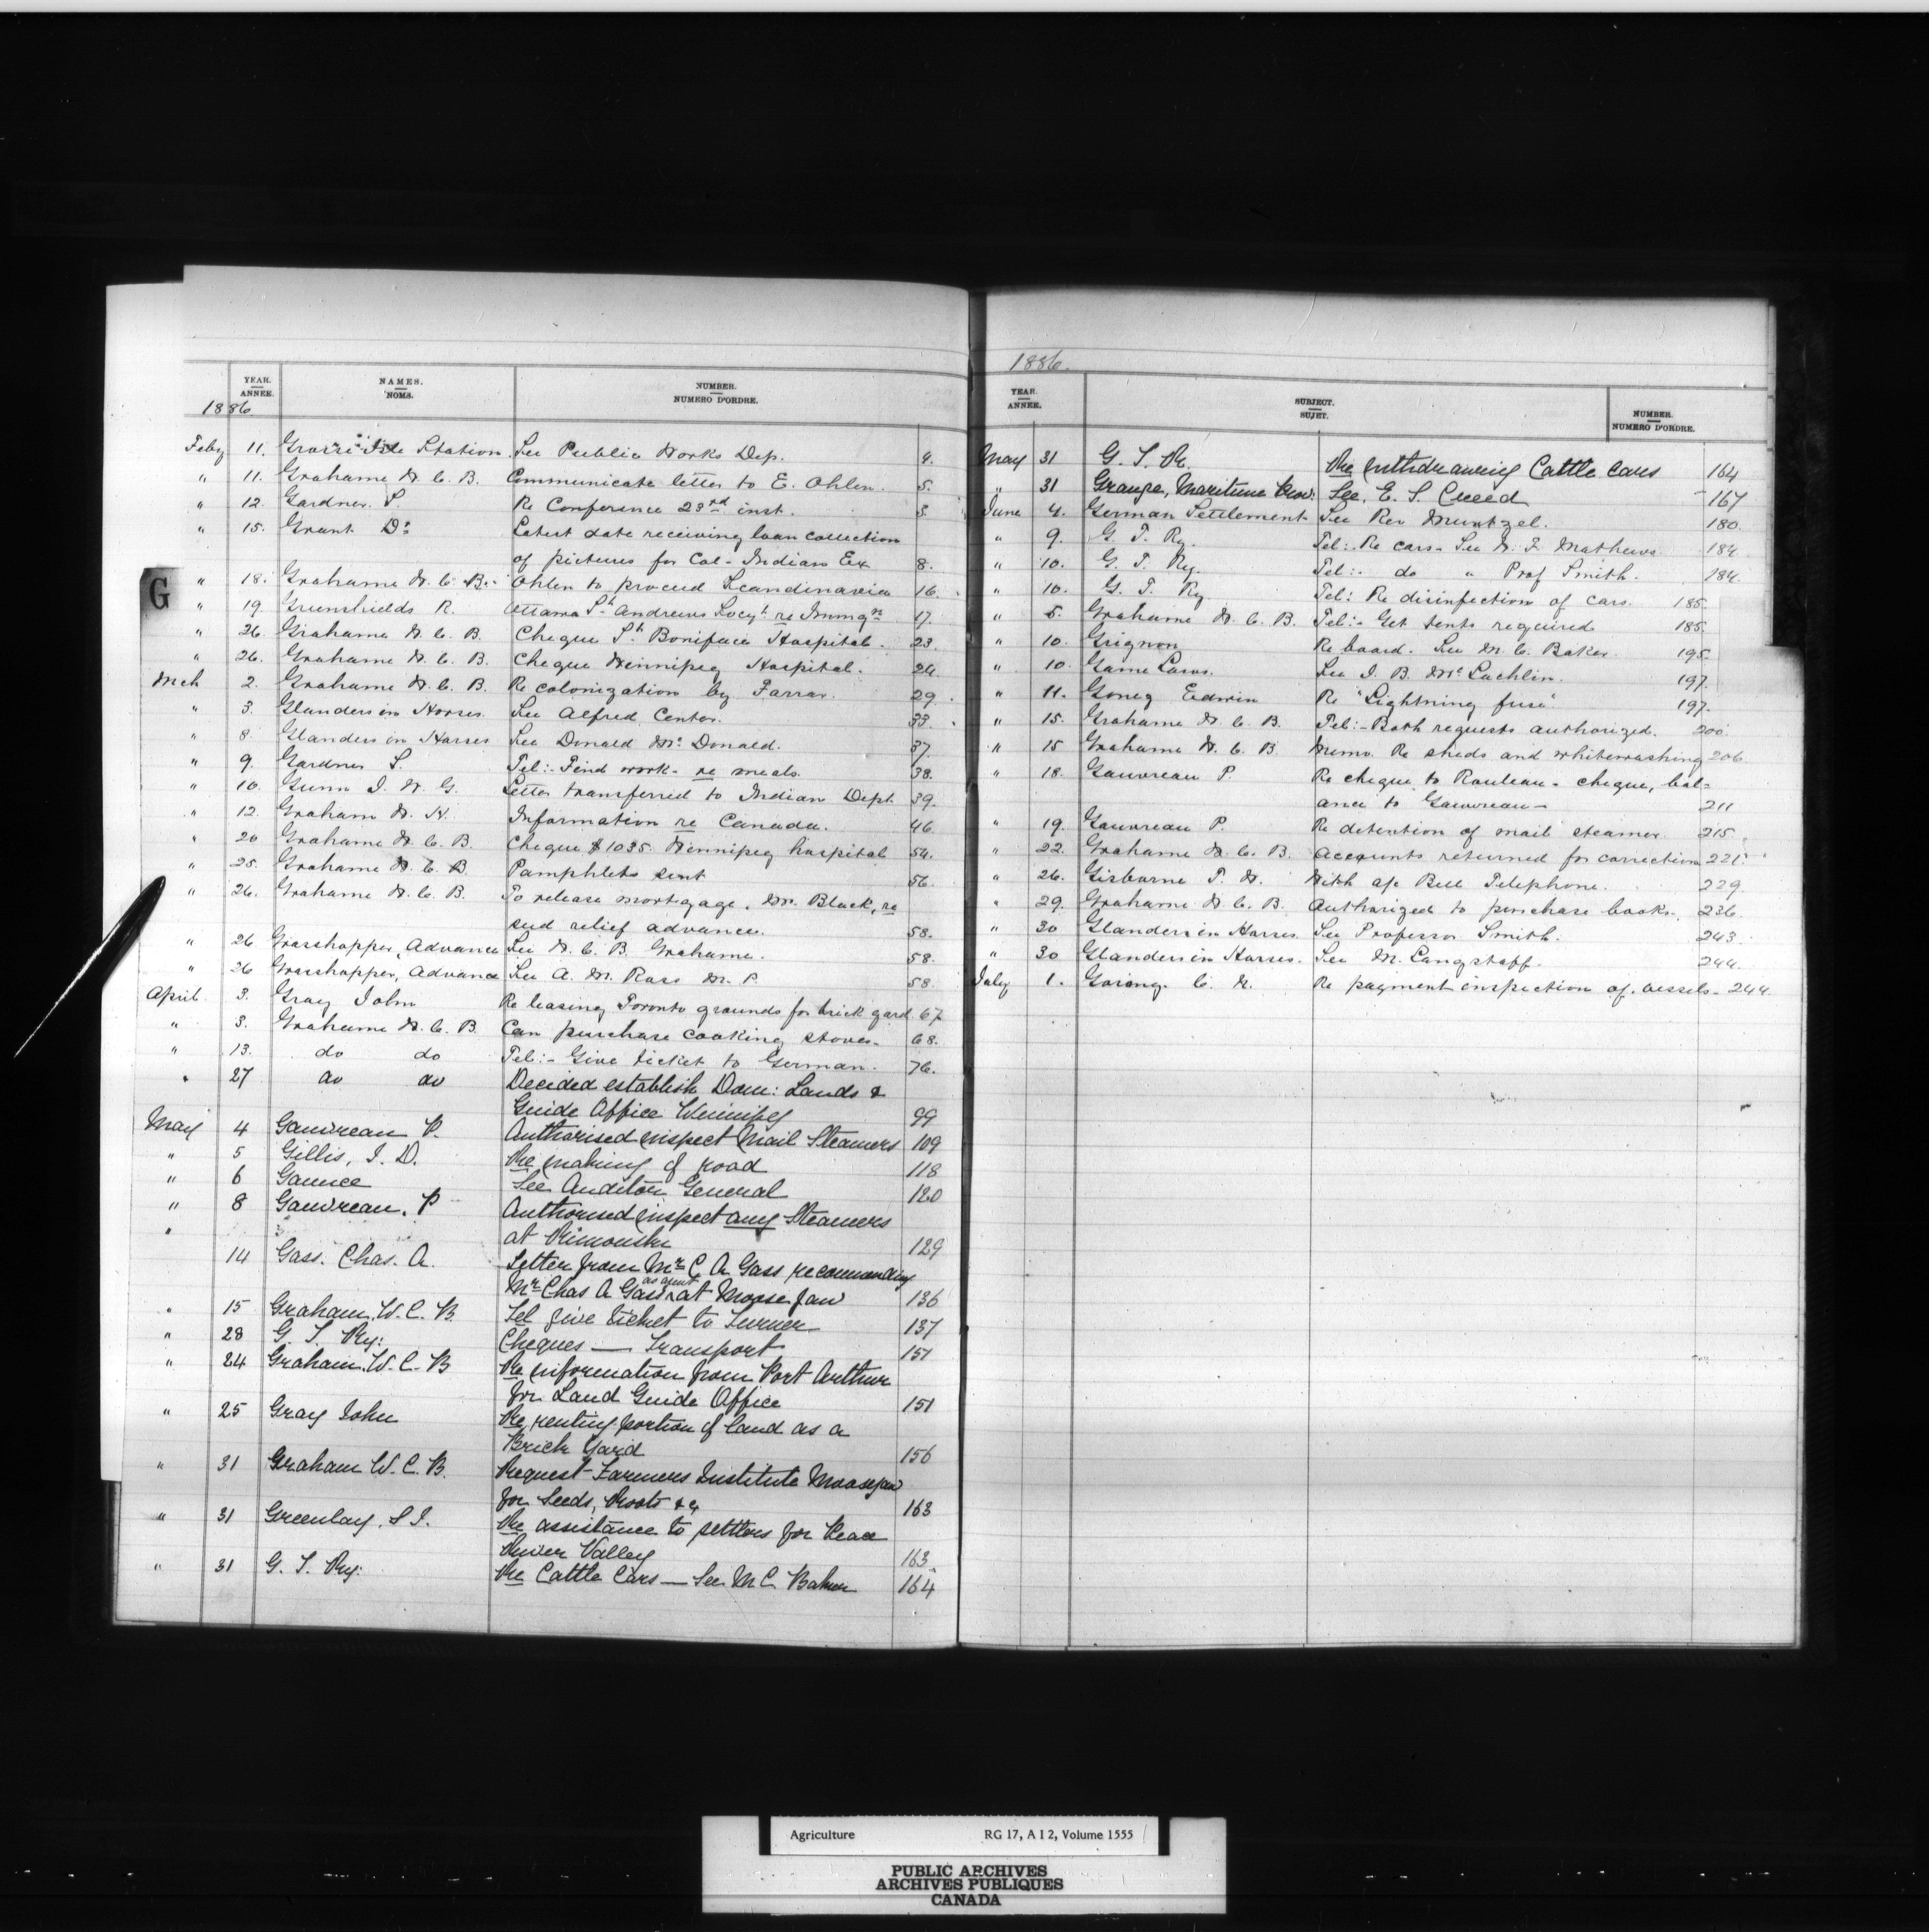 YEAR. ANNEE. NAMES. NOMS. NUMBER. NUMERO D'ORDRE.
1886
Feby 11. Station. See Public Works Dep. 4.
" 11. Grahame W. C. B. Communicate letter to E. Ohlen. 5.
" 12. Gardner S. Re Conference 23rd inst. 5.
" 15. Grant Dr Latest date receiving loan collection
of pictures for Col- Indian Ex 8.
G
" 18. Grahame W. C. B. Ohlen to proceed Scandinavia 16.
" 19. Greenshields R. Ottawa St Andrews Socyt re Immgn 17.
" 26. Grahame W. C. B. Cheque St Boniface Hospital. 23.
" 26. Grahame W. C. B. Cheque Winnipeg Hospital. 24.
Mch 2. Grahame W. C. B. Re colonization by Farrar. 29.
" 3. Glanders in Horses. See Alfred Center. 33.
" 8. Glanders in Horses See Donald Mc Donald. 37.
" 9. Gardner S. Tel:- Find work- re meals. 38.
" 10. Gunn J. W. G. Letter transferred to Indian Dept. 39.
" 12. Graham W. H. Information re Canada. 46.
" 20 Grahame W. C. B. Cheque $1035. Winnipeg hospital 54.
" 25. Grahame W. C. B Pamphlets sent 56.
" 26. Grahame W. C. B. To release mortgage, Mr. Black, re
seed relief advance. 58.
" 26 Grasshopper, Advance See W. C. B. Grahame. 58.
" 26 Grasshopper, Advance See A. M. Ross M. P. 58.
April 3. Gray John Re leasing Toronto grounds for brick yard. 67.
" 3. Grahame W. C. B. Can purchase cooking stoves. 68.
" 13. do do Tel:- Give ticket to German. 76.
" 27 do do Decided establish Dom: Lands &
Guide Office Winnipeg 99
May 4 Gauvreau P. Authorised inspect Mail Steamers 109
" 5 Gillis, J. D. Re making of road 118
" 6 See Auditor General 120
" 8 Gauvreau. P Authorised inspect any Steamers
" at Rimouski 129
14 Gass. Chas. A. Letter from Mr C A Gass recommending
Mr Chas A Gass as agent at Moose Jaw 136
" 15 Graham W. C. B. Tel give ticket to Turner 137
" 28 G. T. Ry: Cheques — Transport 151
" 24 Graham W. C. B Re information from Port Arthur
for Land Guide Office 151
" 25 Gray John Re renting portion of land as a
Brick Yard 156
" 31 Graham W. C. B. Request- Farmers Institute Moosejaw
for Seeds, Roots &c 163
" 31 Greenlay, S J. Re assistance to settlers for Peace
River Valley 163
" 31 G. T. Ry: Re Cattle Cars — See M C Baker 164
1886.
YEAR. ANNEE. SUBJECT. SUJET. NUMBER. NUMERO D'ORDRE.
May 31 G. T. R. Re withdrawing Cattle Cars 164
" 31 Grange, Maritime Prov. See, E. S. Creed 167
June 4. German Settlement See Rev Muntzel. 180.
" 9. G. T. Ry. Tel:- Re cars- See W. F. Mathews 184.
" 10. G. T. Ry. Tel:- do " Prof Smith. 184.
" 10. G. T. Ry Tel: Re disinfection of cars. 185.
" 5. Grahame W. C. B. Tel:- Get tents required 185.
" 10. Grignon Re board. See M. C. Baker. 195.
" 10. Game Laws. See J. B. Mc Lachlin. 197.
" 11. Edwin Re "Lightning fuse" 197.
" 15. Grahame W. C. B. Tel:- Both requests authorized. 200.
" 15 Grahame W. C. B Memo. Re sheds and whitewashing 206.
" 18. Gauvreau P. Re cheque to Rouleau- cheque, bal-
ance to Gauvreau- 211
" 19. Gauvreau P. Re detention of mail steamer. 215.
" 22. Grahame W. C. B. Accounts returned for correction 221.
" 26. Gisborne F. N. With a/c Bell Telephone. 229.
" 29. Grahame W. C. B. Authorized to purchase books. 236.
" 30 Glanders in Horses. See Professor Smith. 243.
" 30 Glanders in Horses. See M. Langstaff. 244.
July 1. Goring. C. R. Re payment inspection of vessels- 244.
Agriculture RG 17, A I 2, Volume 1555
PUBLIC ARCHIVES
ARCHIVES PUBLIQUES
CANADA